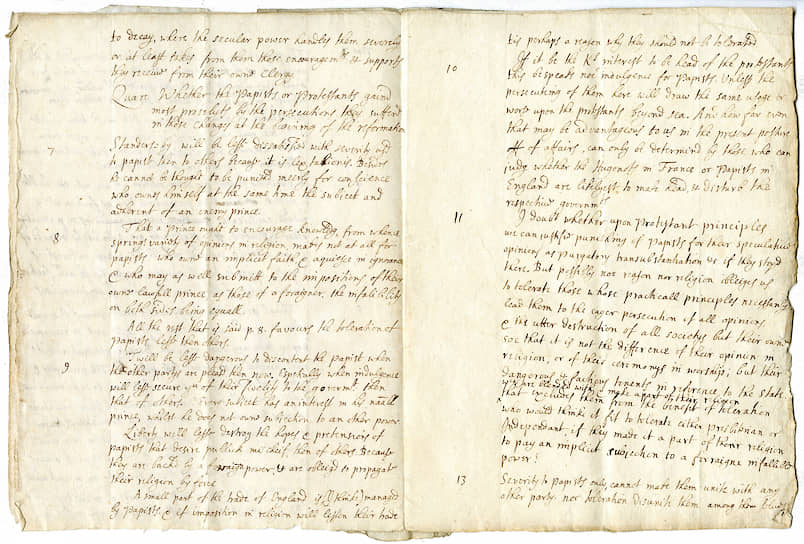 to decay, where the secular power handles them severely
or at least takes from them those encouragemts & supports
they receive from their owne Clergy
Quære Whether the Papists or Protestants gaind
most proselits by the persecutions they sufferd
in those changes at the begining of the reformation
7 Standers by will be less dissatisfied with severity usd
to papist then to others because it is lex talionis. Besides
he cannot be thought to be punishd meerly for conscience
who ownes himself at the same time the subject and
adherent of an enemy prince
8 That a Prince ought to encourage knowledg from whence
springs variety of opinions in religion, makes not at all for
papists who owne an implicit faith & acquiesce in ignorance
& who may as well submitt to the impositions of their
owne lawfull prince as those of a foraigner, the infalibility
on both sides being equall.
All the rest that is said p. 8. favours the toleration of
papists less then others.
9 Twill be less dangerous to discontent the papist when
the other partys are pleasd then now. Especially when indulgence
will lesse secure ym of their firmness to the govermt then
that of others. Every subject has an interest in his naall
prince, whilst he does not owne subjection to an other power
Liberty will lesse destroy the hopes & pretensions of
papists that desire publick mischeif then of others Because
they are backd by a foraigne power & are obleiged to propagate
their religion by force
A small part of the trade of England is (I thinke) managed
by papists, & if imposition in religion will lessen their trade
tis perhaps a reason why they should not be tolerated
10 If it be the Ks interest to be head of the protestants
this bespeaks noe indulgence for papists Unless the
persecuting of them here will draw the same usage or
worse upon the protestants beyond sea. And how far even
that may be advantagious to us in the present posture
of affairs, can only be determind by those who can
judg whether the Hugenots in France or Papists in
England are likelyest to make head, & disturb the
respective govermts
11 I doubt whether upon Protestant principles
we can justifie punishing of Papists for their speculative
opinions as Purgatory transubstantiation &c if they stopd
there. But possibly noe reason nor religion obleiges us
to tolerate those whose practicall principles necessarily
lead them to the eager persecution of all opinions
& the utter destruction of all societys but their owne
soe that it is not the difference of their opinion in
religion, or of their ceremonys in worship; but their
dangerous & factious tenents in reference to the state
wch are blended with & make a part of their religion
that excludes them from the benefit of toleration
who would thinke it fit to tolerate either presbiterian or
Independant if they made it a part of their religion
to pay an implicit subjection to a forraigne infallible
power?
13 Severity to papists only cannot make them unite with any
other party. nor toleration disunite them among them